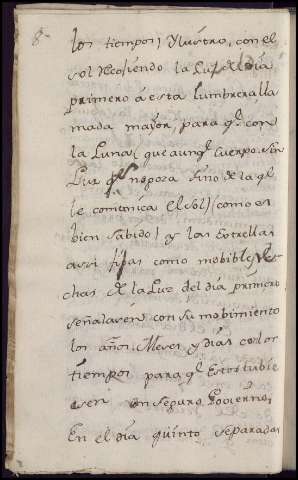 8
los tiempos) Ylustro, con el
sol Recosiendo la Luz del dia
primero á esta lumbrera lla
mada mayor, para q̃ con
la Luna( que aunq̃ Cuerpo sin
Luz q̃ no goza sino de la q̃
le comunica el sol) como es
bien sabido) y las Estrellas
assi fijas como mobibles he
chas de la Luz del dia primero
señalasen con su mobimiento
los años, Meses y dias con los
tiempos para q̃ Estos tubie
sen un seguro Govierno,
En el dia quinto separadas